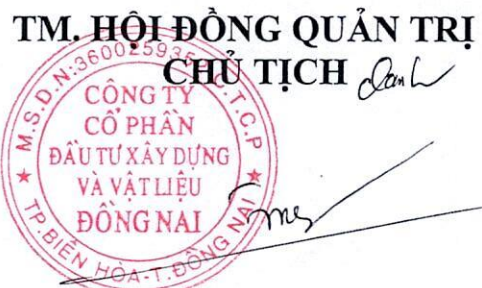 TM. HỘI ĐỒNG QUẢN TRỊ
CHỦ TỊCH
M.S.D.N: C.T.C.P
CÔNG TY
CỔ PHẦN
ĐẦU TƯ XÂY DỰNG
VÀ VẬT LIỆU
ĐỒNG NAI
TP. BIÊN HÒA - T. ĐỒNG NAI